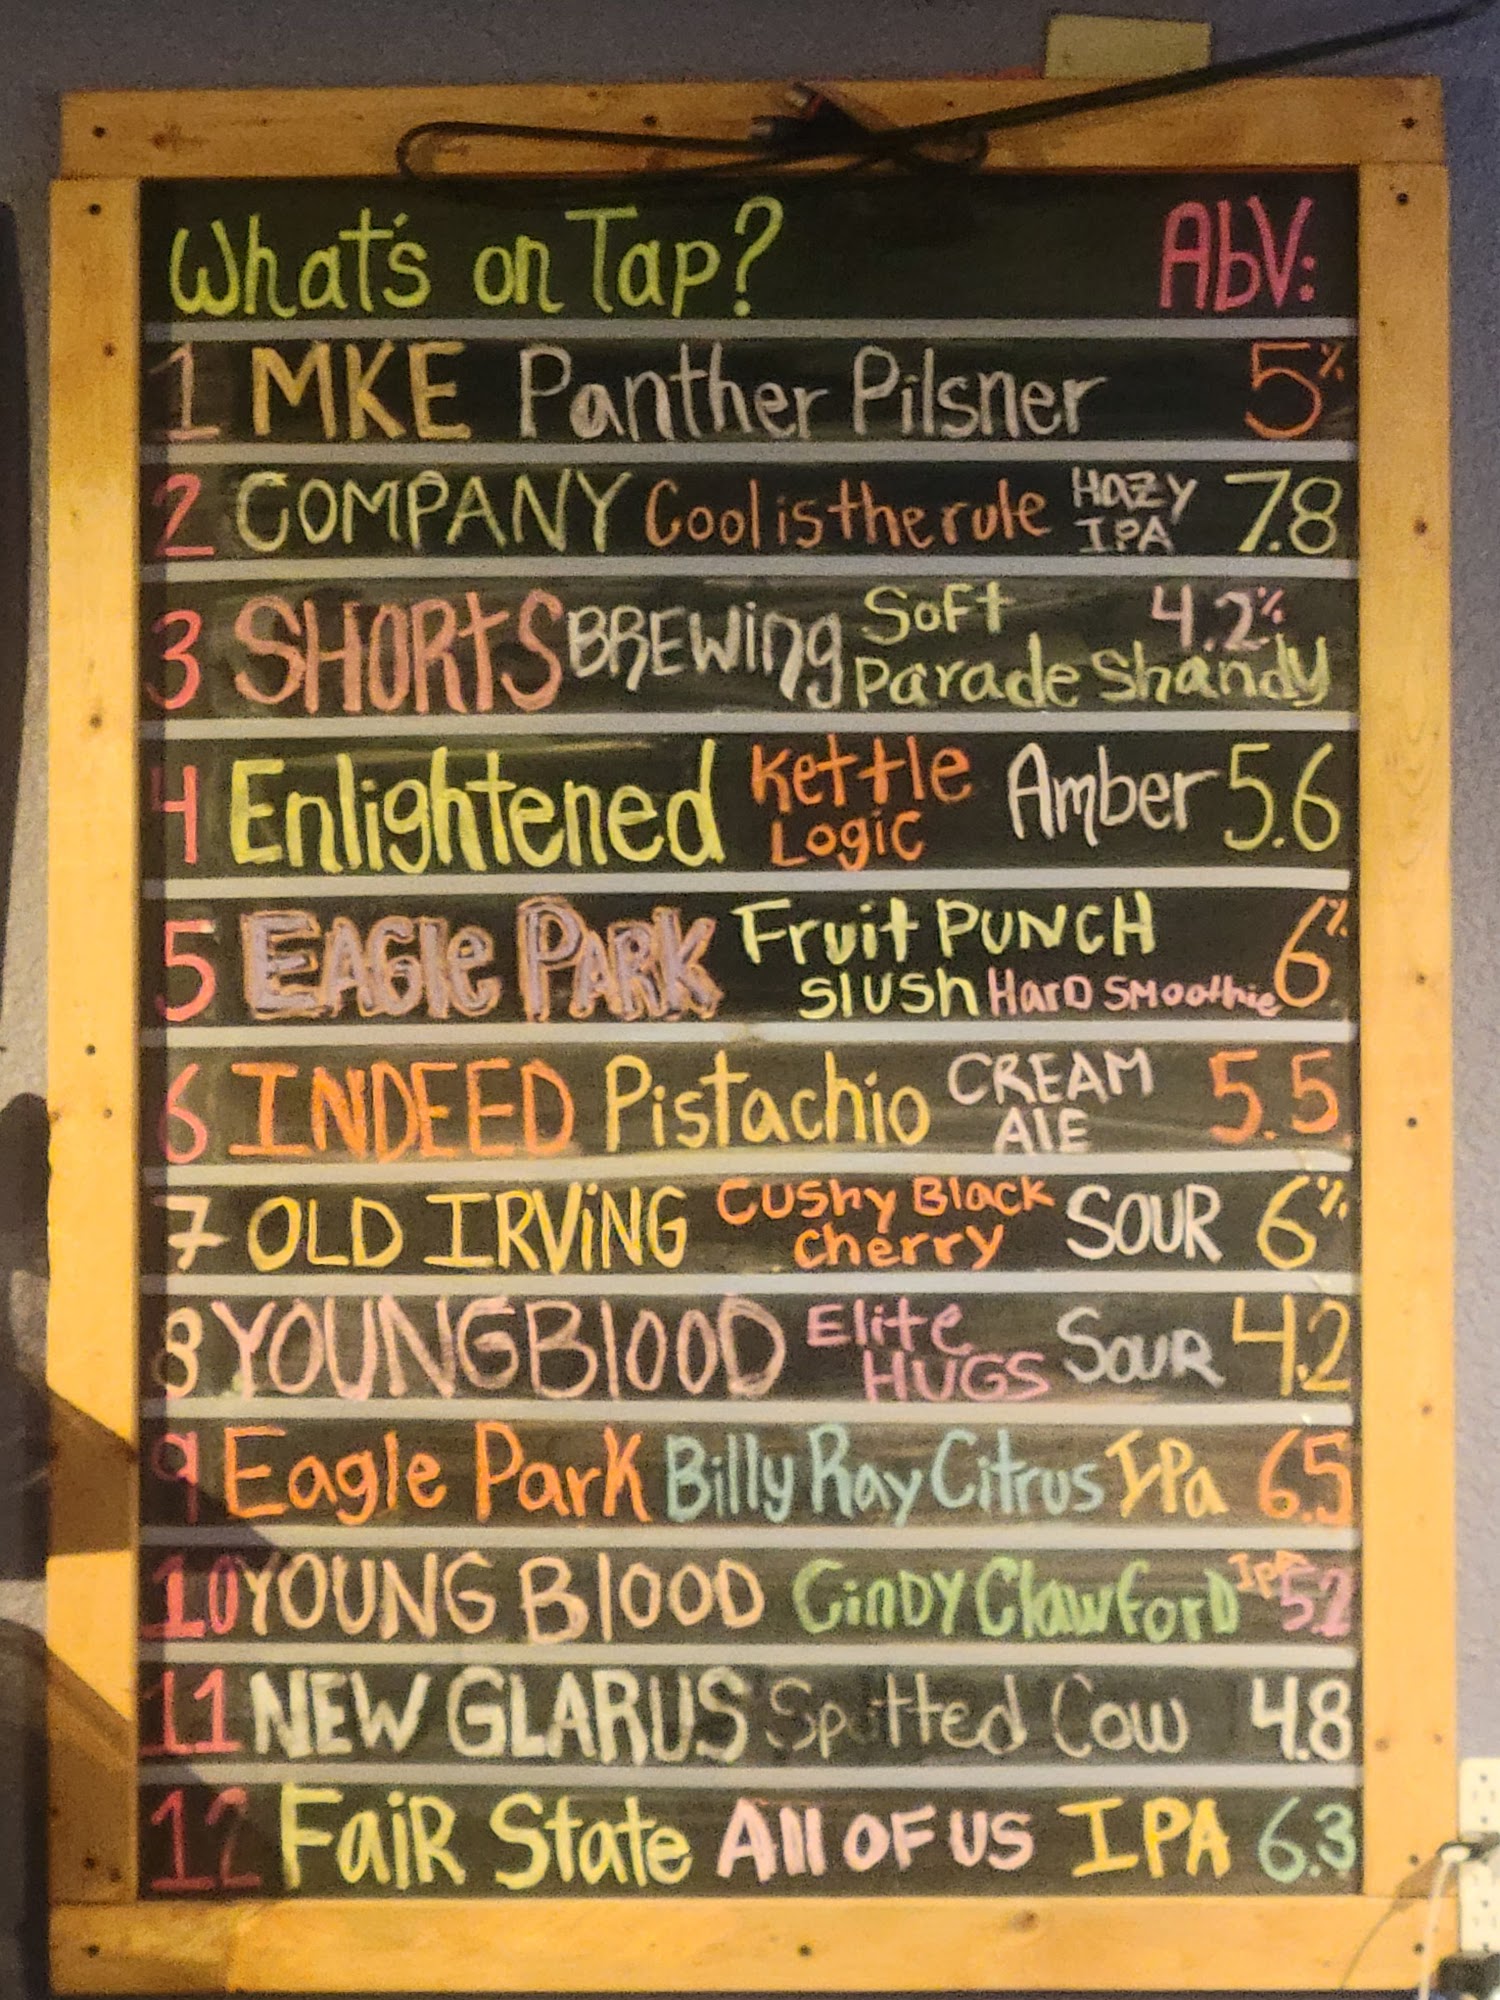 What's on Tap? AbV:
1 MKE Panther Pilsner 5%
2 COMPANY Cool is the rule HAZY IPA 7.8
3 SHORTS BREWing Soft Parade Shandy 4.2%
4 Enlightened Kettle Logic Amber 5.6
5 EAGle PARK Fruit PUNCH slush HarD SMoothie 6%
6 INDEED Pistachio CREAM AlE 5.5
7 OLD IRViNG Cushy Black Cherry SOUR 6%
8 YOUNGBlOOD Elite HUGS SOUR 4.2
9 Eagle Park Billy Ray Citrus IPa 6.5
10 YOUNG BlOOD CinDy ClawforD IPA 5.2
11 NEW GLARUS Spotted Cow 4.8
12 FaiR State All OF US IPA 6.3